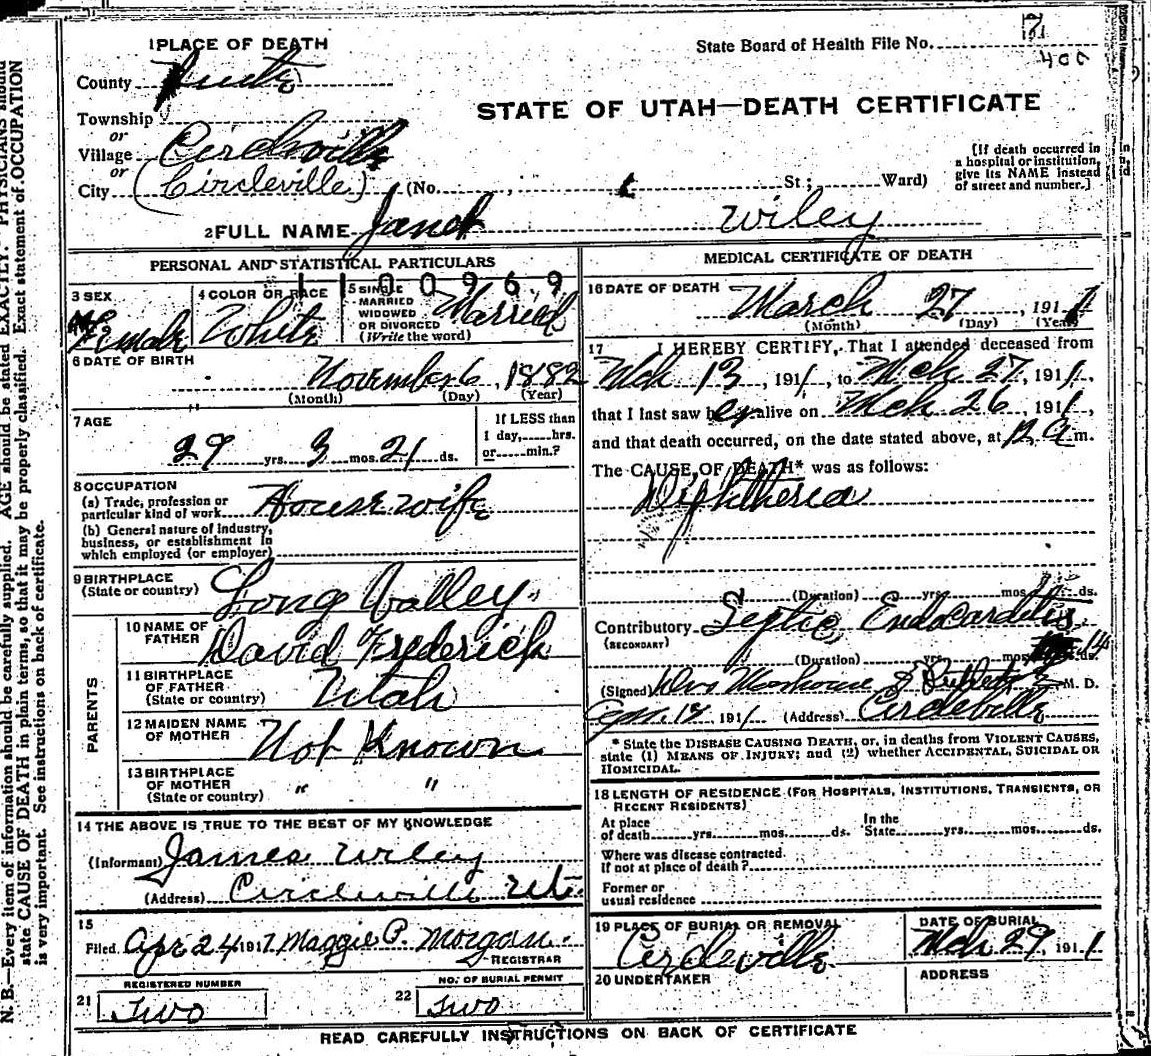 1 PLACE OF DEATH
State Board of Health File No. 
400
County Piute
STATE OF UTAH—DEATH CERTIFICATE
Township
or
Village Circleville
or
City (Circleville) (No. St; Ward)
[If death occurred in a hospital or institution, give its NAME instead of street and number.]
2 FULL NAME Janet Wiley
PERSONAL AND STATISTICAL PARTICULARS
1100969
3 SEX Female
4 COLOR OR RACE White
5 SINGLE MARRIED WIDOWED OR DIVORCED (Write the word) Married
6 DATE OF BIRTH
November 6, 1882
(Month) (Day) (Year)
7 AGE
29 yrs. 3 mos. 21 ds.
If LESS than 1 day, hrs. or min.?
8 OCCUPATION
(a) Trade, profession or particular kind of work House wife
(b) General nature of industry, business, or establishment in which employed (or employer)
9 BIRTHPLACE (State or country) Long Valley
PARENTS
10 NAME OF FATHER David Frederick
11 BIRTHPLACE OF FATHER (State or country) Utah
12 MAIDEN NAME OF MOTHER Not Known
13 BIRTHPLACE OF MOTHER (State or country) " "
14 THE ABOVE IS TRUE TO THE BEST OF MY KNOWLEDGE
(Informant) James Wiley
(Address) Circleville Ut.
15
Filed Apr 24, 191 Maggie P. Morgan
REGISTRAR
REGISTERED NUMBER
21 Two
NO. OF BURIAL PERMIT
22 Two
MEDICAL CERTIFICATE OF DEATH
16 DATE OF DEATH
March 27, 1911
(Month) (Day) (Year)
17 I HEREBY CERTIFY, That I attended deceased from
Mch 13, 1911, to Mch 27, 1911,
that I last saw her alive on Mch 26, 1911,
and that death occurred, on the date stated above, at 12 a m.
The CAUSE OF DEATH* was as follows:
Diphtheria
(Duration) yrs. mos. ds.
Contributory Septic Endocarditis
(SECONDARY)
(Duration) yrs. mos. 14 ds.
(Signed) M. D.
191 (Address) Circleville
* State the DISEASE CAUSING DEATH, or, in deaths from VIOLENT CAUSES, state (1) MEANS OF INJURY; and (2) whether ACCIDENTAL, SUICIDAL OR HOMICIDAL.
18 LENGTH OF RESIDENCE (FOR HOSPITALS, INSTITUTIONS, TRANSIENTS, OR RECENT RESIDENTS)
At place of death yrs. mos. ds. In the State yrs. mos. ds.
Where was disease contracted if not at place of death?
Former or usual residence
19 PLACE OF BURIAL OR REMOVAL
Circleville
DATE OF BURIAL
Mch 29, 1911
20 UNDERTAKER
ADDRESS
READ CAREFULLY INSTRUCTIONS ON BACK OF CERTIFICATE
N. B.—Every item of information should be carefully supplied. AGE should be stated EXACTLY. PHYSICIANS should
state CAUSE OF DEATH in plain terms, so that it may be properly classified. Exact statement of OCCUPATION
is very important. See instructions on back of certificate.